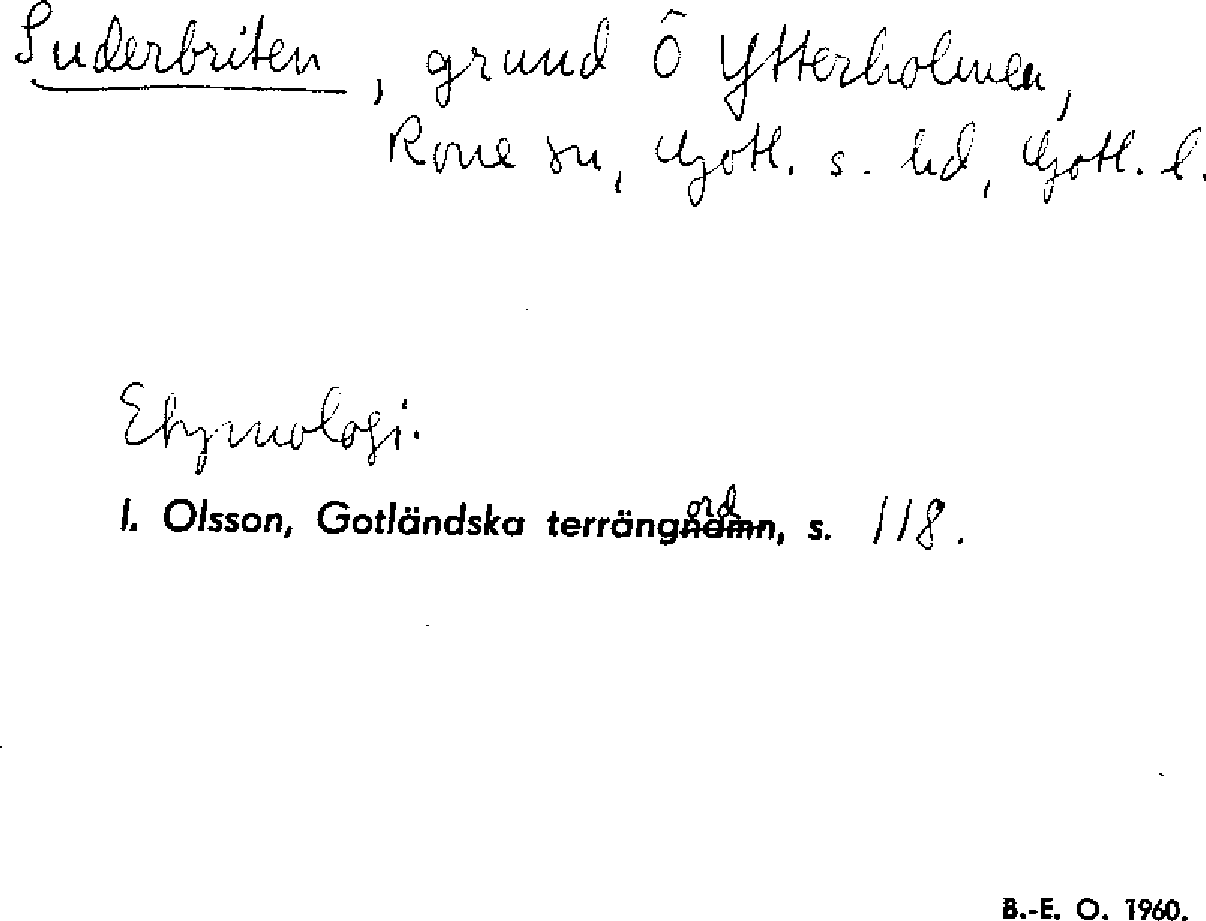 Suderbriten, grund Ö Ytterholmen,
Rone sn, Gotl. s. hd, Gotl. l.
Etymologi.
I. Olsson, Gotländska terrängord, s. 118.
B.-E. O. 1960.